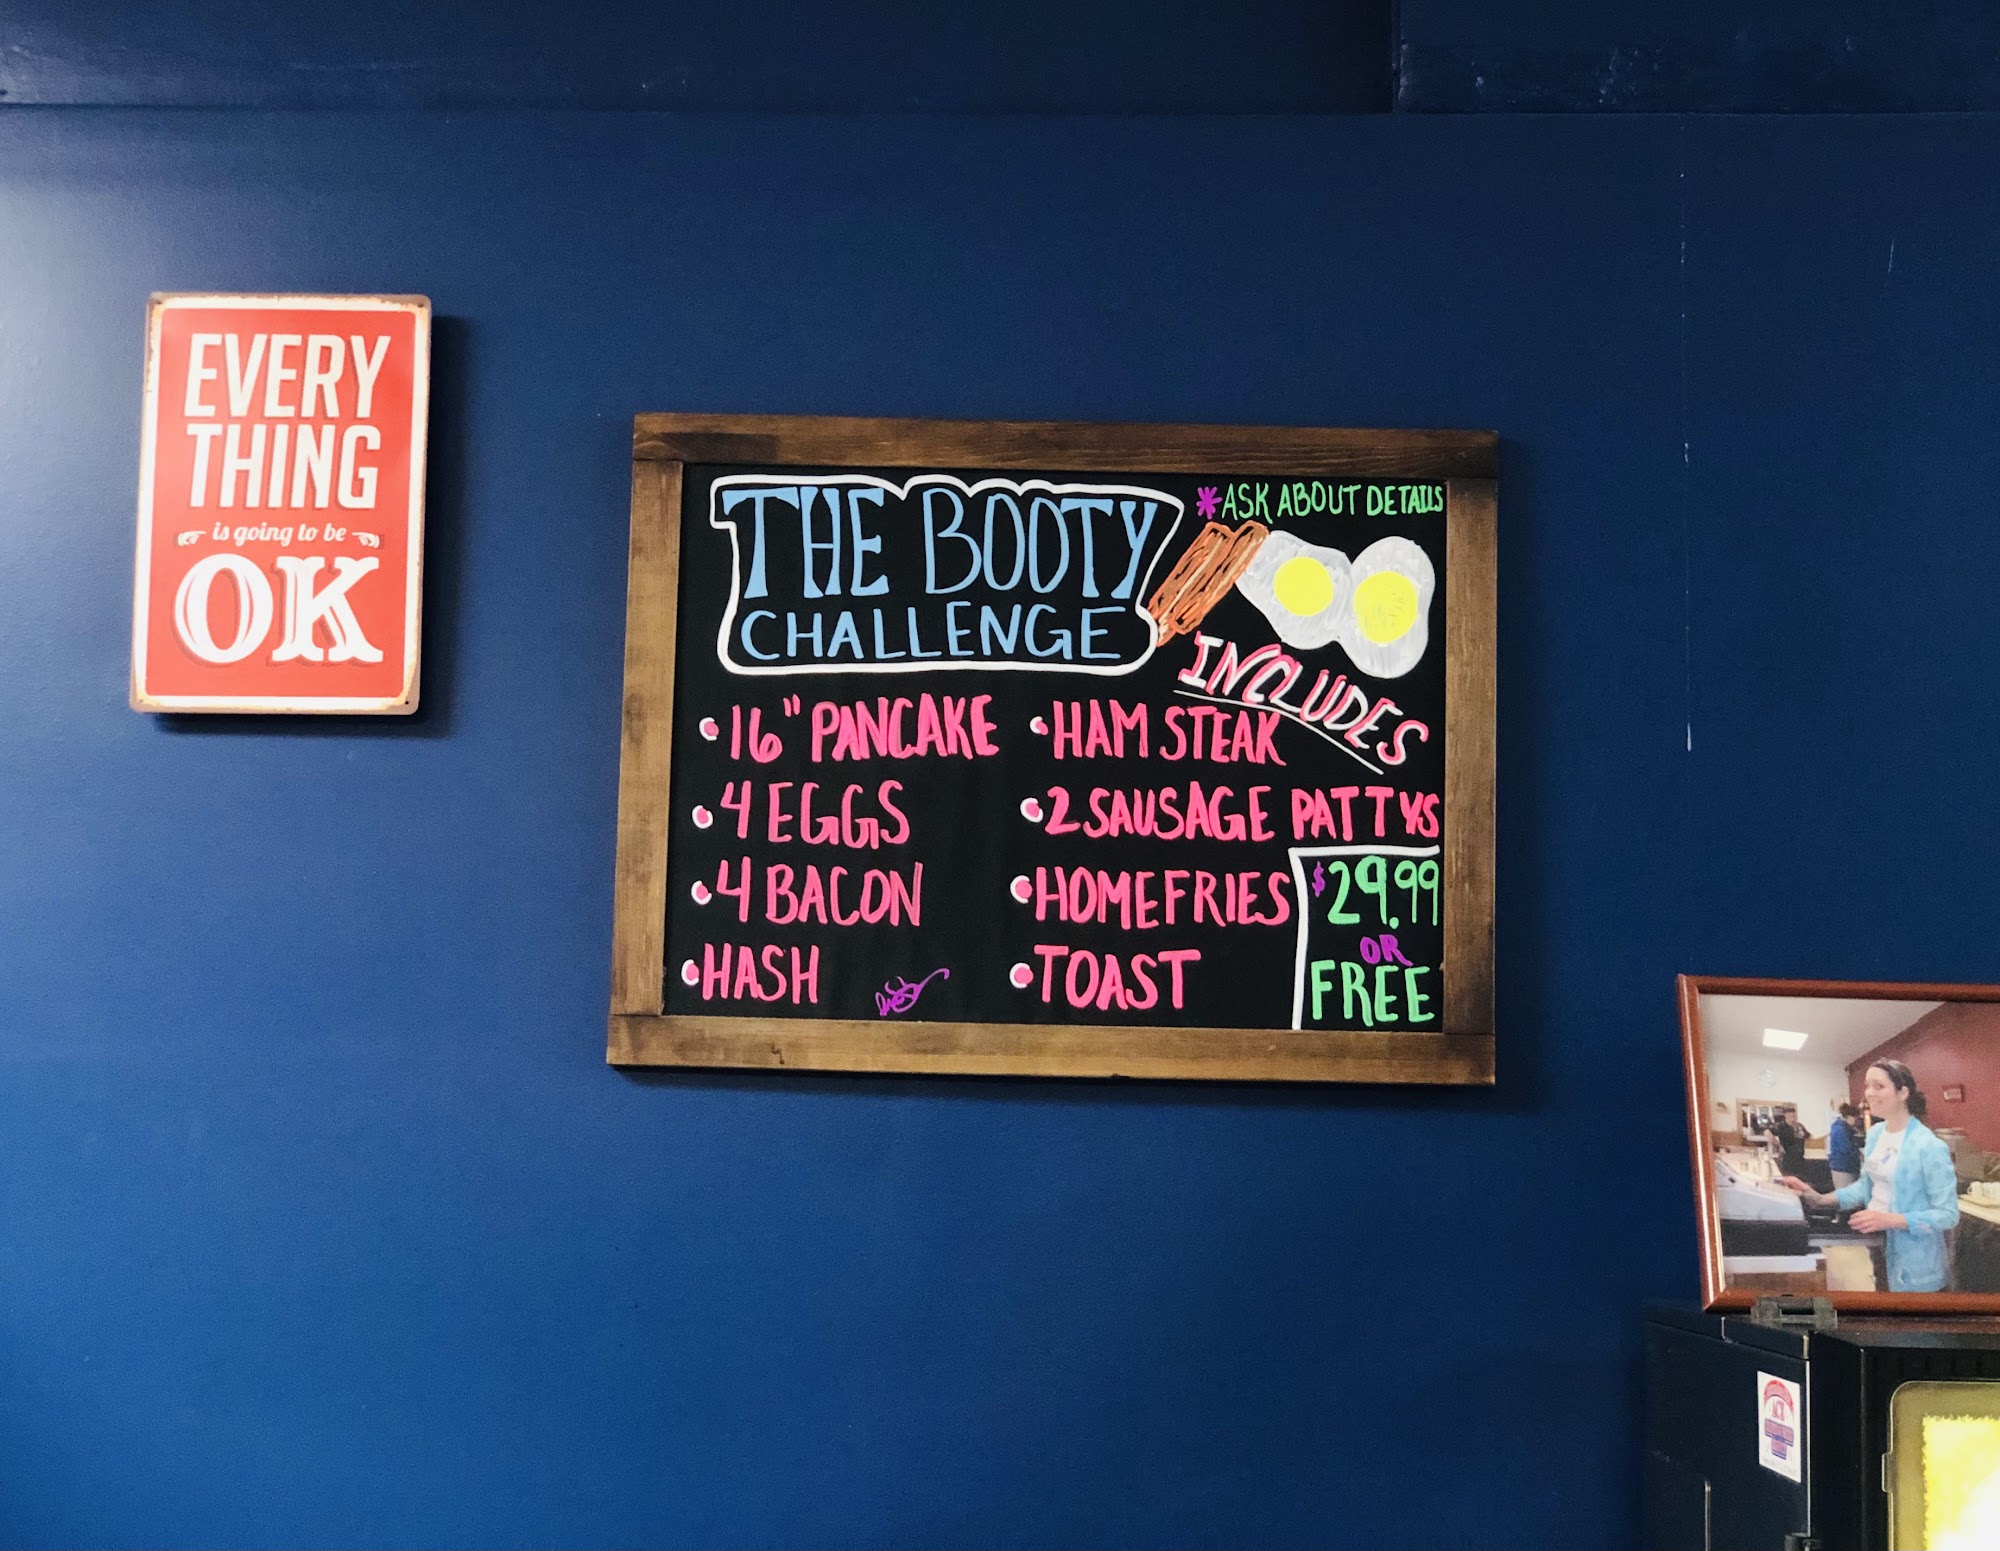 EVERY
THING
is going to be
OK
THE BOOTY
CHALLENGE
*ASK ABOUT DETAILS
INCLUDES
•16" PANCAKE
•4 EGGS
•4 BACON
•HASH
•HAM STEAK
•2 SAUSAGE PATTYS
•HOMEFRIES
•TOAST
$29.99
OR
FREE